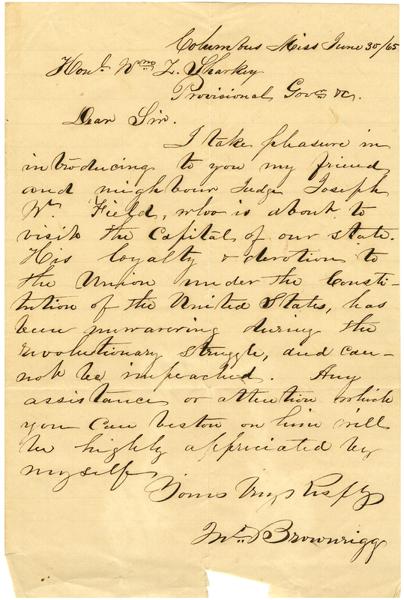 Columbus Miss June 30/65
Honl. Wm L. Sharkey
Provisional Govr &c.
Dear Sir.
I take pleasure in
introducing to you my friend
and neighbour Judge Joseph
W. Field, who is about to
visit the Capital of our state.
His loyalty & devotion to
the Union under the Consti-
tution of the United States, has
been unwavering during the
revolutionary struggle, and can-
not be impeached. Any
assistance or attention which
you can bestow on him will
be highly appreciated by
myself
Yours Very Respfy
Brownrigg